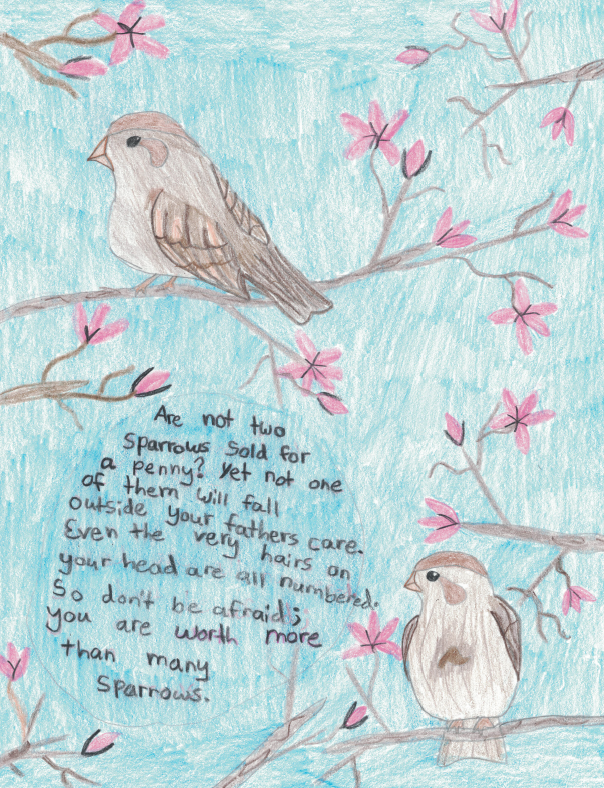 Are not two
Sparrows Sold for
a penny? Yet not one
of them will fall
outside your fathers care.
Even the very hairs on
your head are all numbered.
So don't be afraid;
you are worth more
than many
Sparrows.